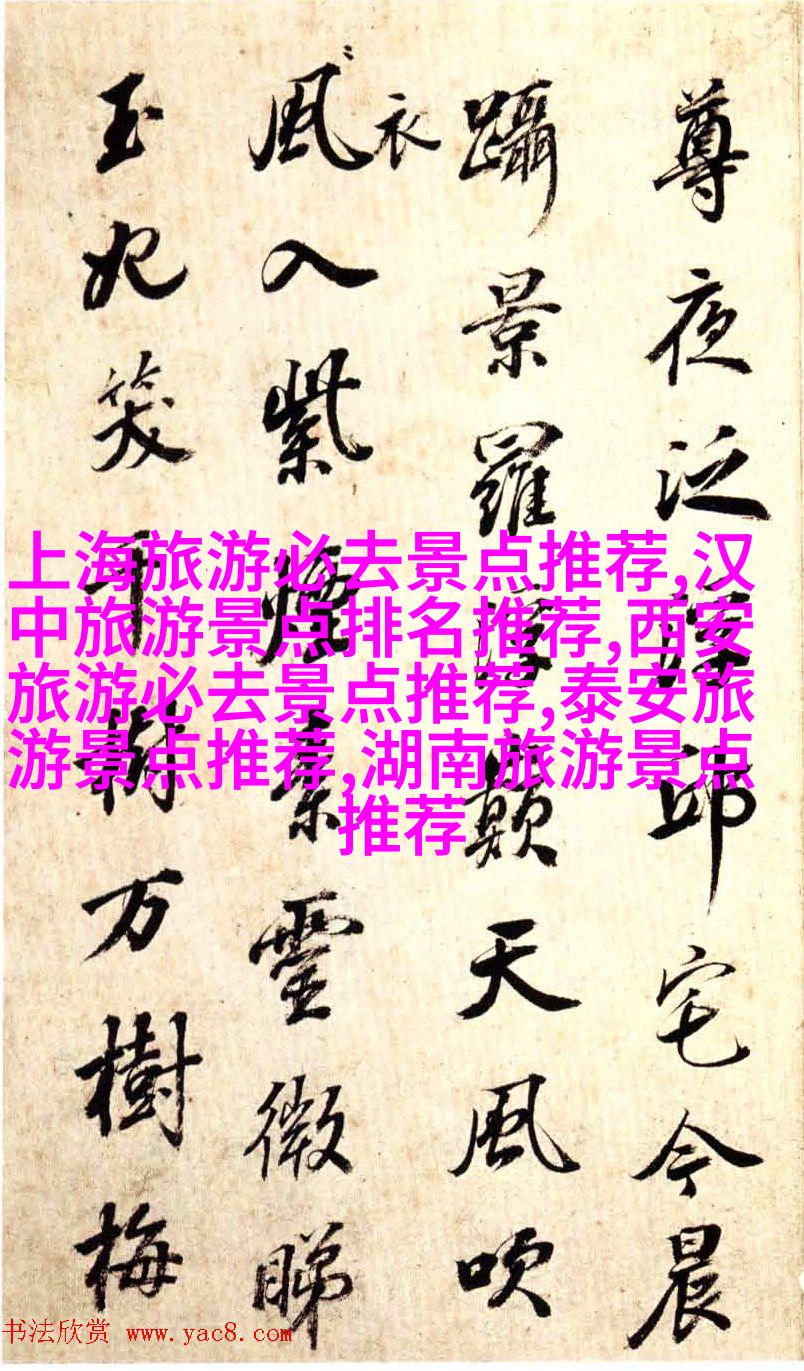 尊夜泛邱宅今晨
躡景羅浮顛天風吹
衣
風入紫煙靈微睇
玉妃笑千樹万樹梅
上海旅游必去景点推荐,汉
中旅游景点排名推荐,西安
旅游必去景点推荐,泰安旅
游景点推荐,湖南旅游景点
推荐
书法欣赏 www.yac8.com